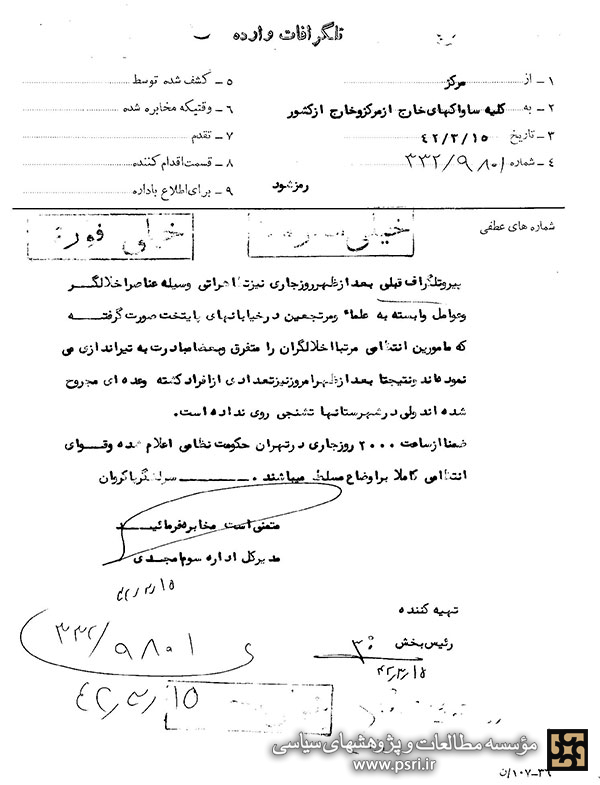 تلگرافات وارده
۱ - از مرکز
۲ - به کلیه ساواکهای خارج از مرکز و خارج از کشور
۳ - تاریخ ۴۲/۳/۱۵
۴ - شماره ۳۳۲/۹۸۰۱
۵ - کشف شده توسط
۶ - وقتیکه مخابره شده
۷ - تقدم
۸ - قسمت اقدام کننده
۹ - برای اطلاع باداره
رمز شود
شماره های عطفی
خیلی
خیلی فوری
پیرو تلگراف قبلی بعد از ظهر روز جاری نیز تظاهراتی وسیله عناصر اخلالگر
و عوامل وابسته به علماء و مرتجعین در خیابانهای پایتخت صورت گرفته
که مامورین انتظامی مرتبا اخلالگران را متفرق و بعضا مبادرت به تیراندازی می
نموده اند و نتیجتا بعد از ظهر امروز نیز تعدادی از افراد کشته وعده ای مجروح
شده اند ولی در شهرستانها تشنجی روی نداده است.
ضمنا از ساعت ۲۰۰۰ روز جاری در تهران حکومت نظامی اعلام شده و قوای
انتظامی کاملا بر اوضاع مسلط میباشند. سرلشگر پاکروان
متمنی است مخابره فرمائید
مدیر کل اداره سوم امجدی
۴۲/۳/۱۵
تهیه کننده
رئیس بخش ۳۰
۴۲/۳/۱۵
۳۳۲/۹۸۰۱
۴۲/۳/۱۵
مؤسسه مطالعات و پژوهشهای سیاسی
www.psri.ir
۳۶-۱۰۷/ن